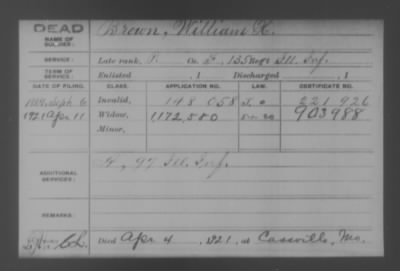 DEAD
NAME OF SOLDIER:
Brown, William H.
SERVICE:
Late rank, P. Co. F, 135 Ill. Inf.
TERM OF SERVICE:
Enlisted , 1 Discharged , 1
DATE OF FILING. CLASS. APPLICATION NO. LAW. CERTIFICATE NO.
Sept 6 Invalid, 148 058 221 926
1921 Apr 11 Widow, 1172,580 903988
Minor,
ADDITIONAL SERVICES:
A, 97 Ill. Inf.
REMARKS:
Died Apr 4, 1921, at Cassville, Mo.